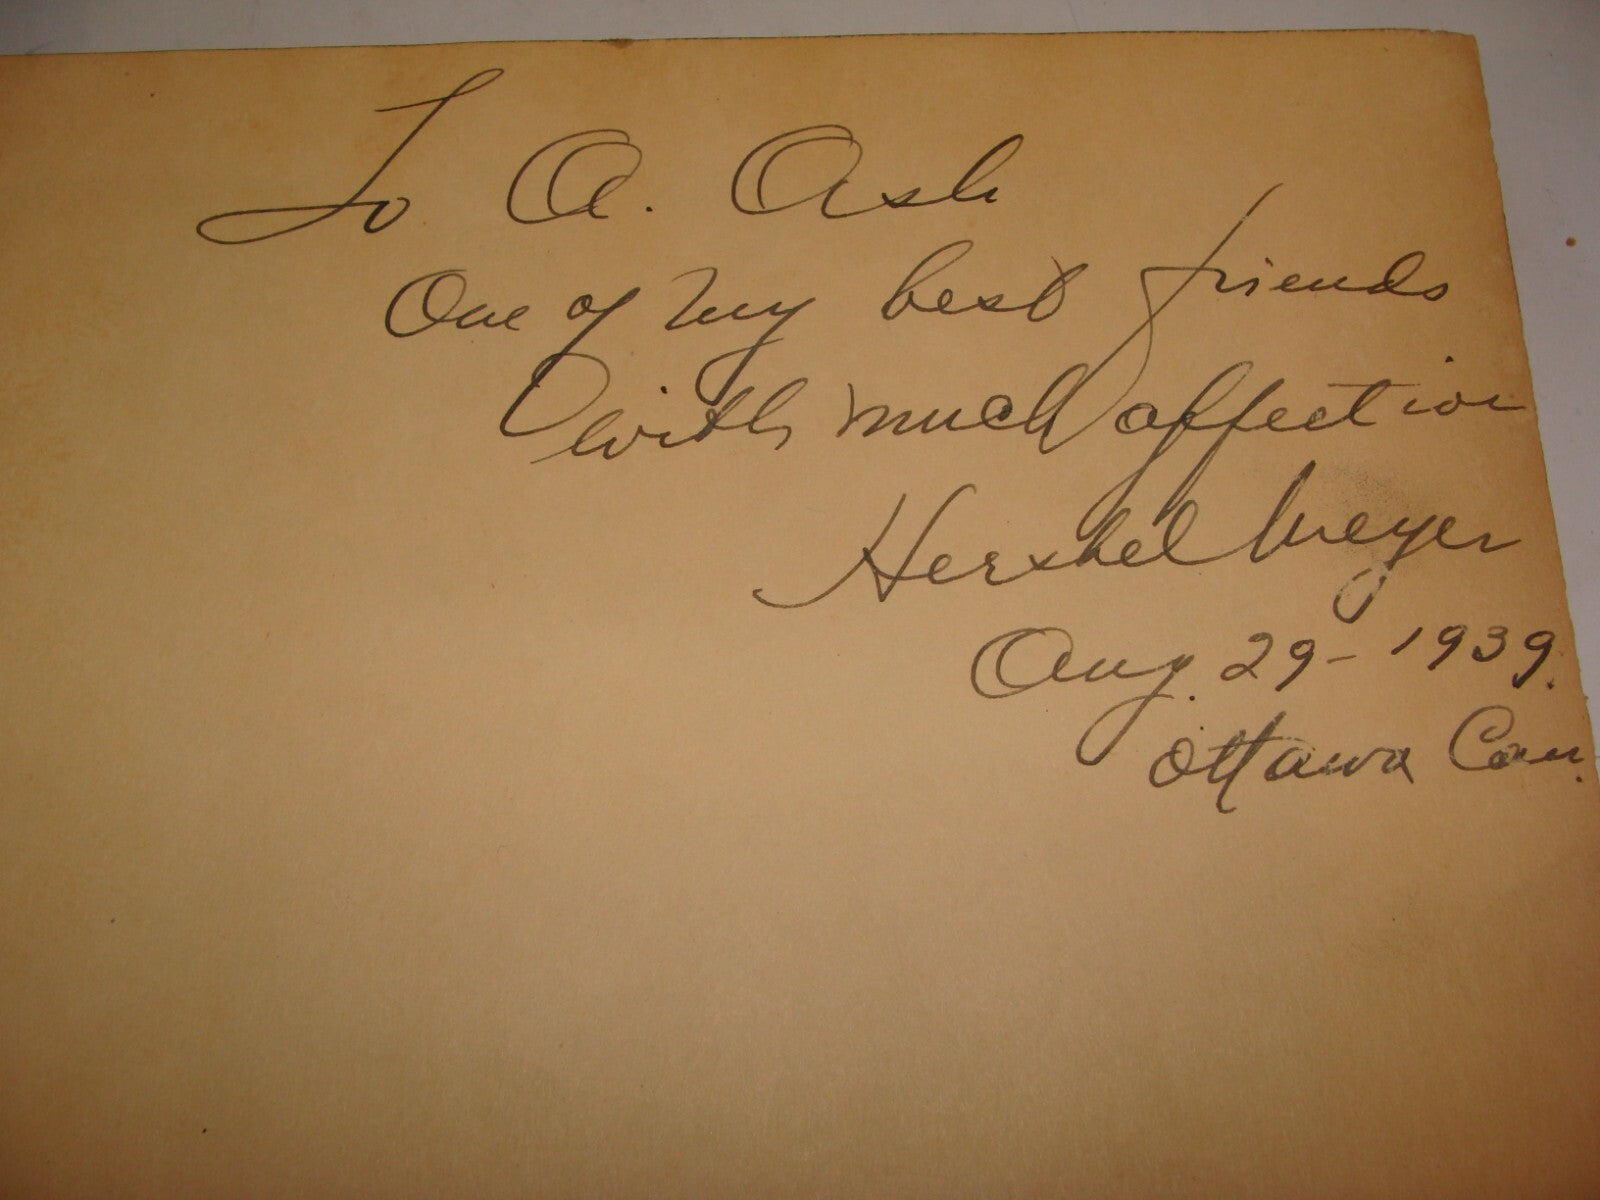 To A. Ash
One of my best friends
with much affection
Hershel Meyer
Aug. 29 - 1939.
Ottawa Can.